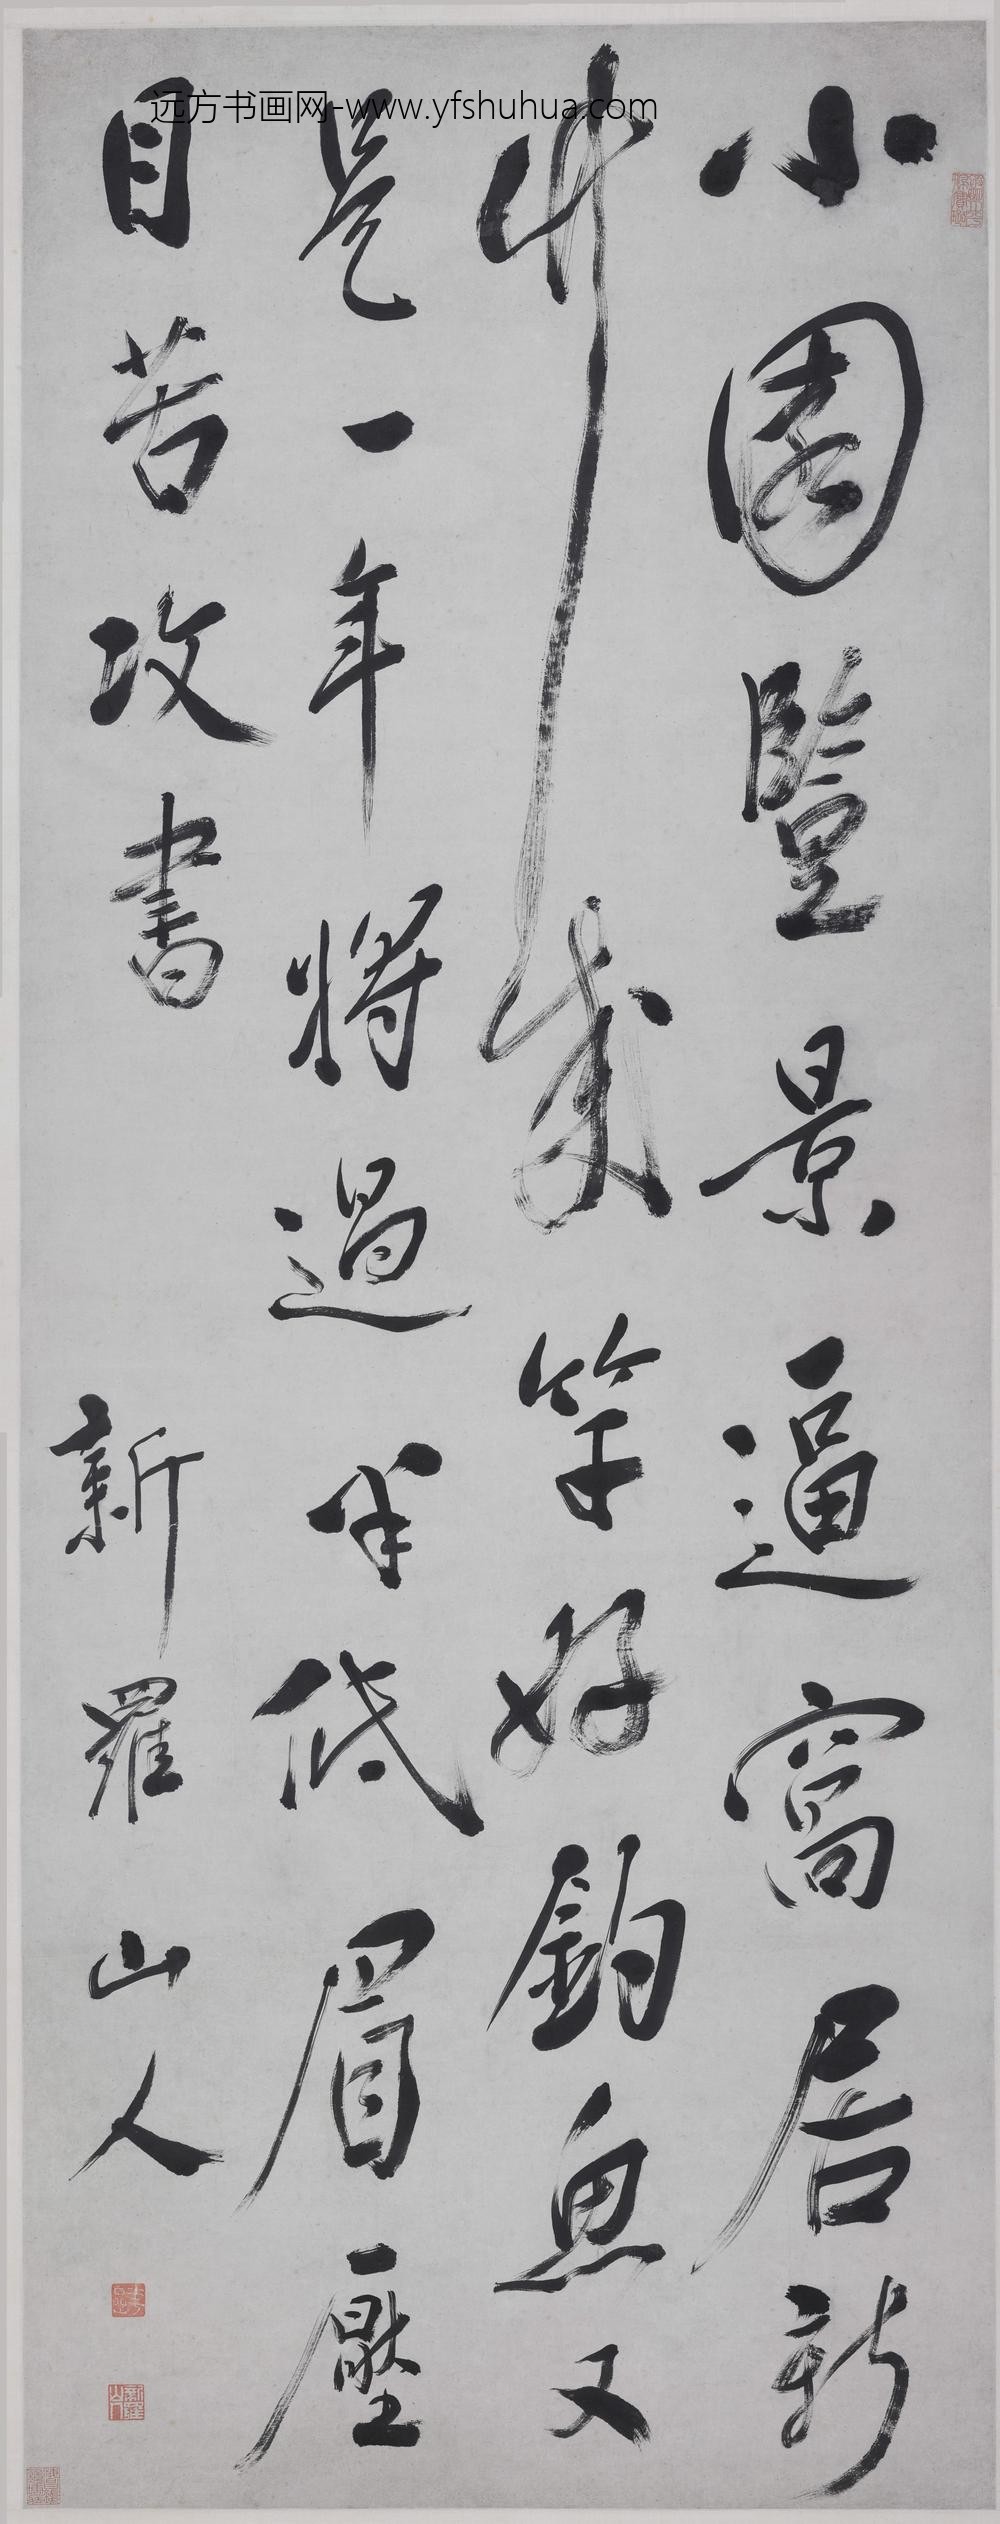 远方书画网-www.yfshuhua.com
小園豎景逼窩居新
竹裁竿好釣魚又
是一年將過半低眉壓
目苦攻書
新羅山人